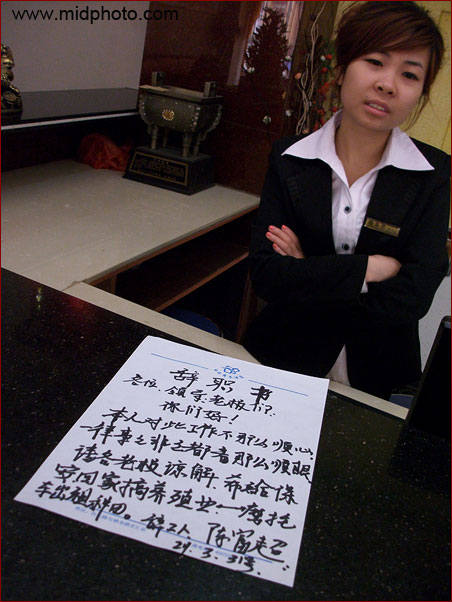 www.midphoto.com
辞职书
各位领导老板们?
你们好!
本人对此工作不那么顺心,
一律事之非去都看那么顺眼
请各老板谅解,希能保
安回家搞养殖业一摩托
车出租来田。
辞工人 陈富
29.3.31号.